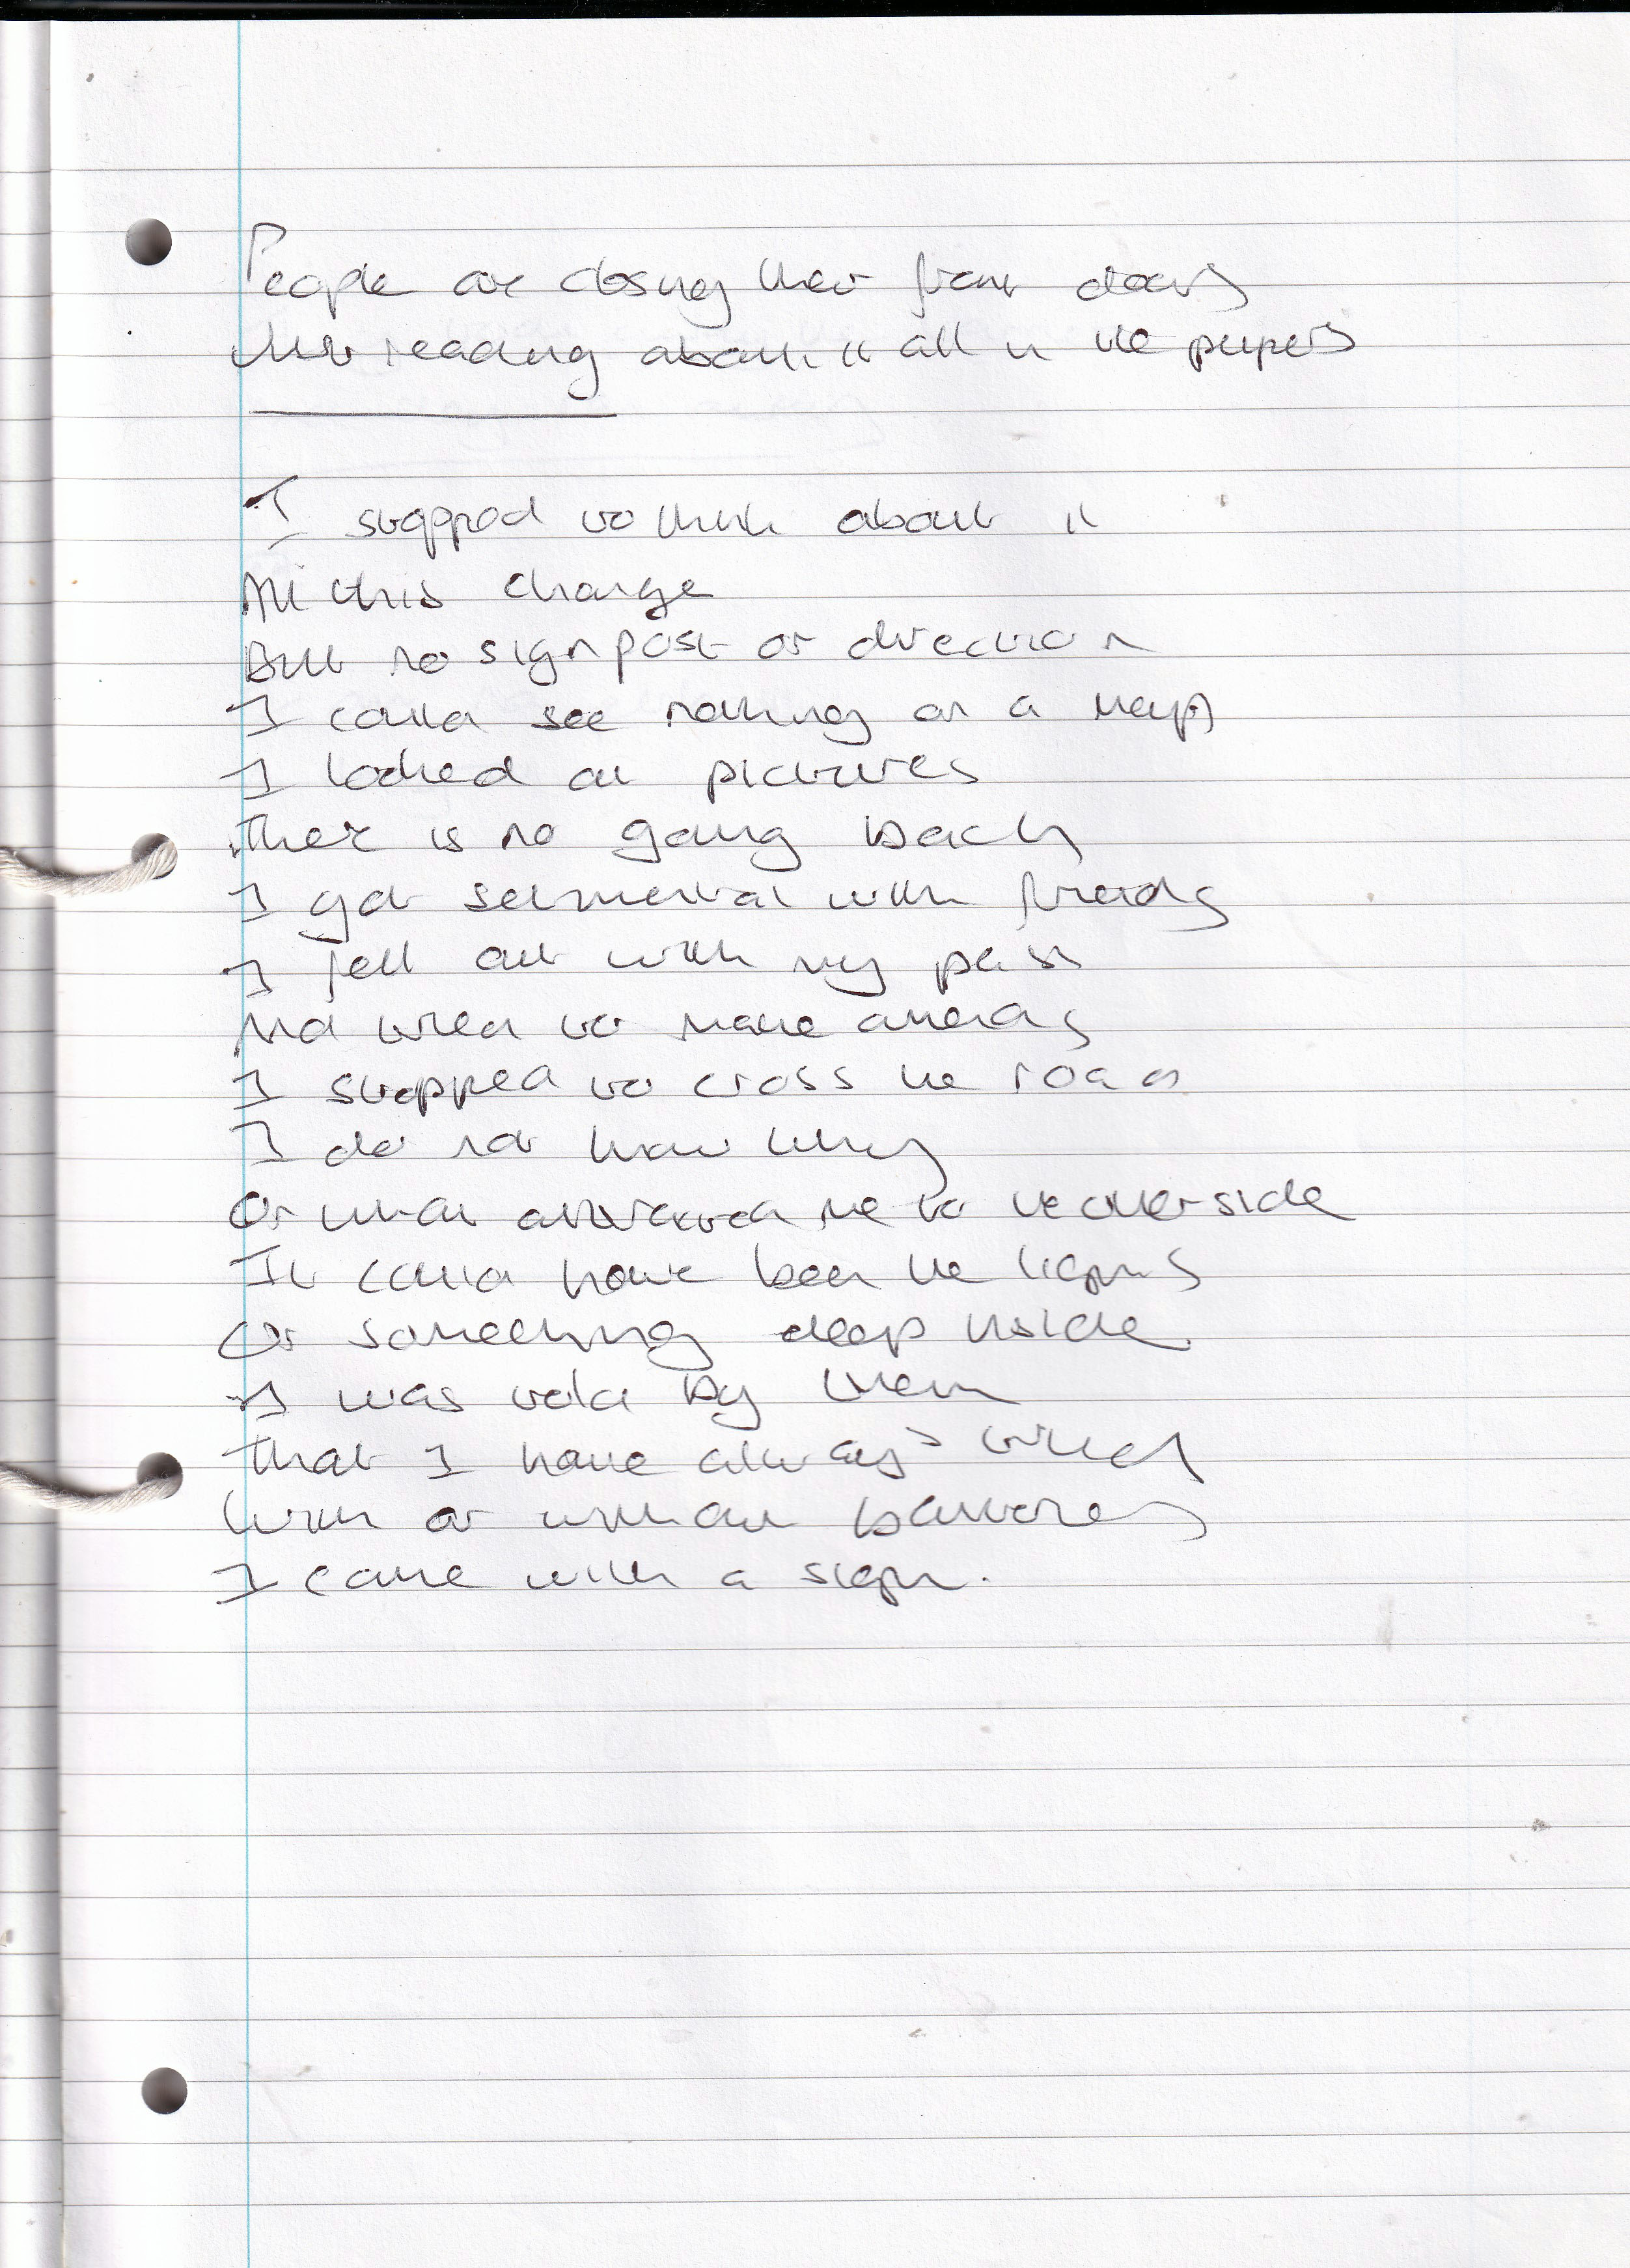 People are closing their front doors
reading about it all in the papers
I stopped to think about it
All this change
But no signpost or direction
I could see nothing on a map
I looked at pictures
There is no going back
I got sentimental with friends
I fell out with my past
And tried to make amends
I stopped to cross the road
I do not know why
Or what attracted me to the other side
It could have been the lights
Or something deep inside.
I was told by them
that I have always tried
With or without batteries
I came with a sign.